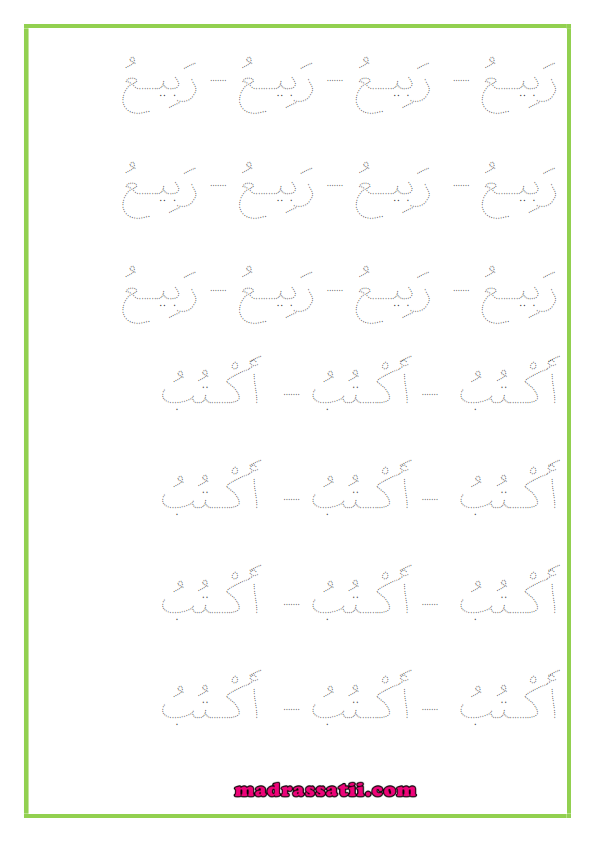 رَبِيعُ - رَبِيعُ - رَبِيعُ - رَبِيعُ
رَبِيعُ - رَبِيعُ - رَبِيعُ - رَبِيعُ
رَبِيعُ - رَبِيعُ - رَبِيعُ - رَبِيعُ
أَكْتُبُ - أَكْتُبُ - أَكْتُبُ
أَكْتُبُ - أَكْتُبُ - أَكْتُبُ
أَكْتُبُ - أَكْتُبُ - أَكْتُبُ
أَكْتُبُ - أَكْتُبُ - أَكْتُبُ
madrassatii.com